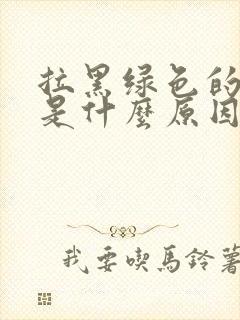 拉黑绿色的
是什麼原因
我要喫馬鈴薯